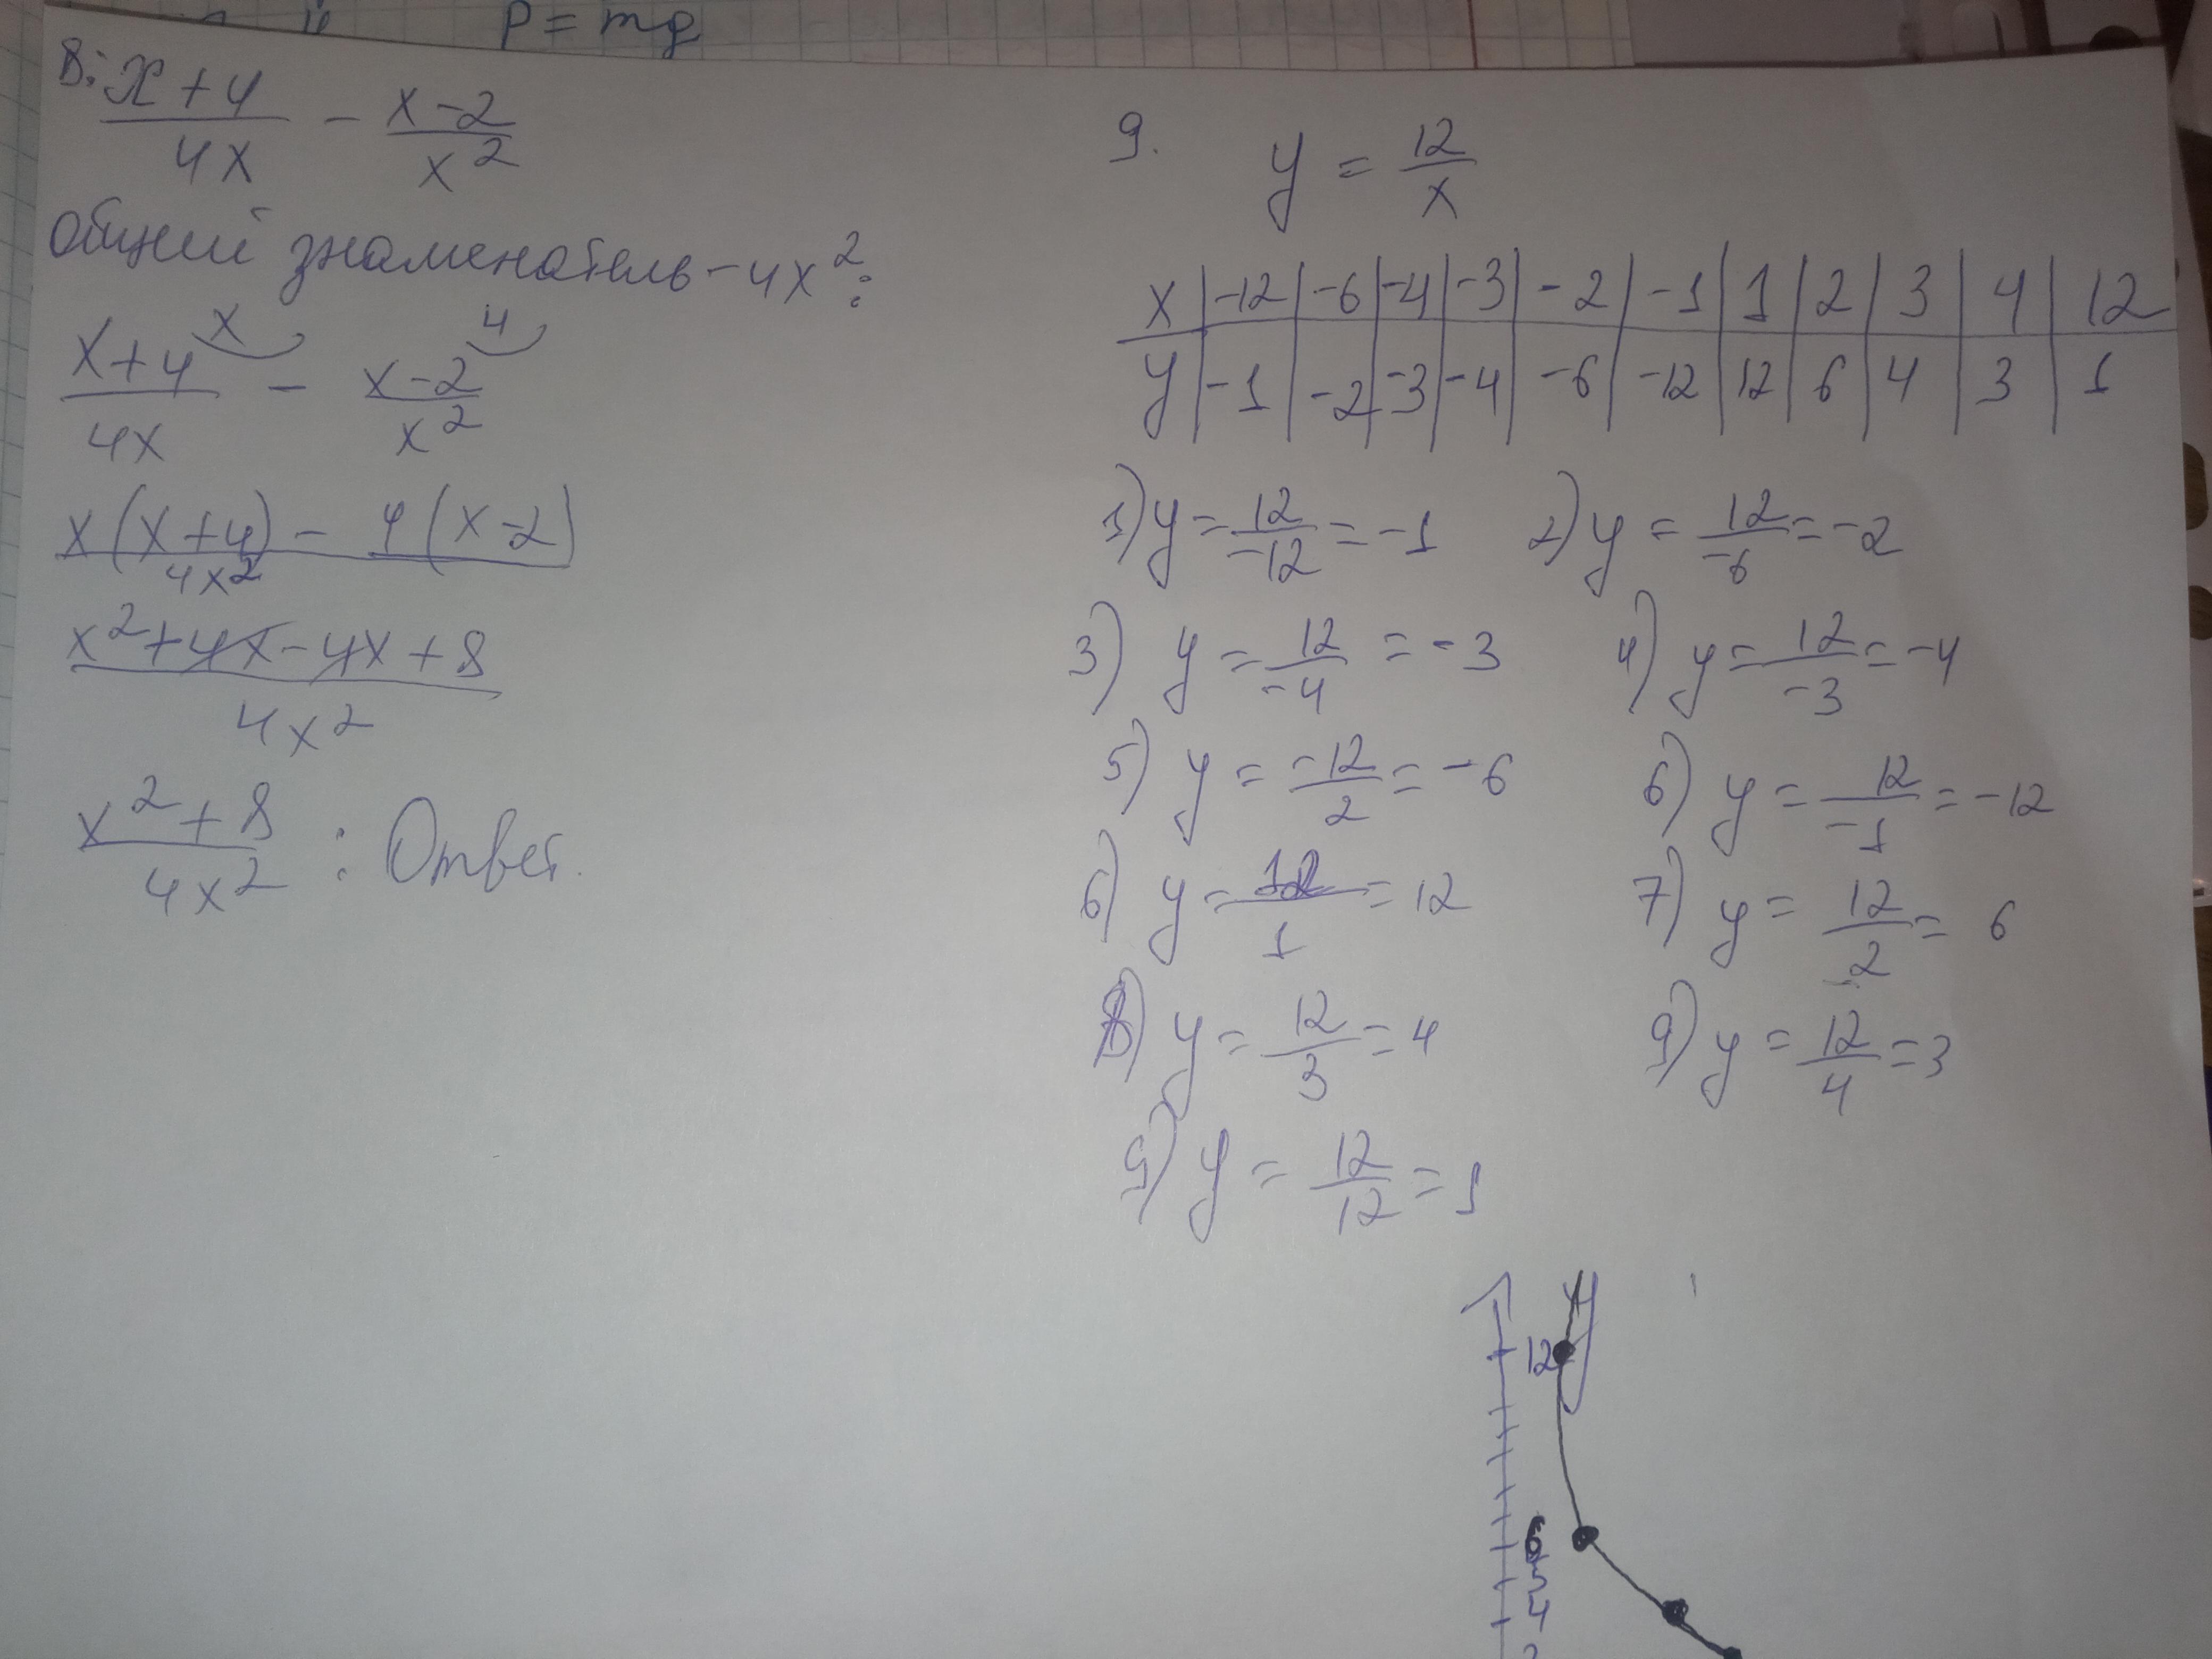 P = mg
8. (x+4)/(4x) - (x-2)/(x²)
Общий знаменатель - 4x²:
x 4
(x+4)/(4x) - (x-2)/(x²)
(x(x+4) - 4(x-2))/(4x²)
(x²+4x-4x+8)/(4x²)
(x²+8)/(4x²) : Ответ.
9. y = 12/x
x | -12 | -6 | -4 | -3 | -2 | -1 | 1 | 2 | 3 | 4 | 12
y | -1 | -2 | -3 | -4 | -6 | -12 | 12 | 6 | 4 | 3 | 1
1) y = 12/-12 = -1 2) y = 12/-6 = -2
3) y = 12/-4 = -3 4) y = 12/-3 = -4
5) y = -12/2 = -6 6) y = 12/-1 = -12
6) y = 12/1 = 12 7) y = 12/2 = 6
8) y = 12/3 = 4 9) y = 12/4 = 3
9) y = 12/12 = 1
y
12
6
5
4